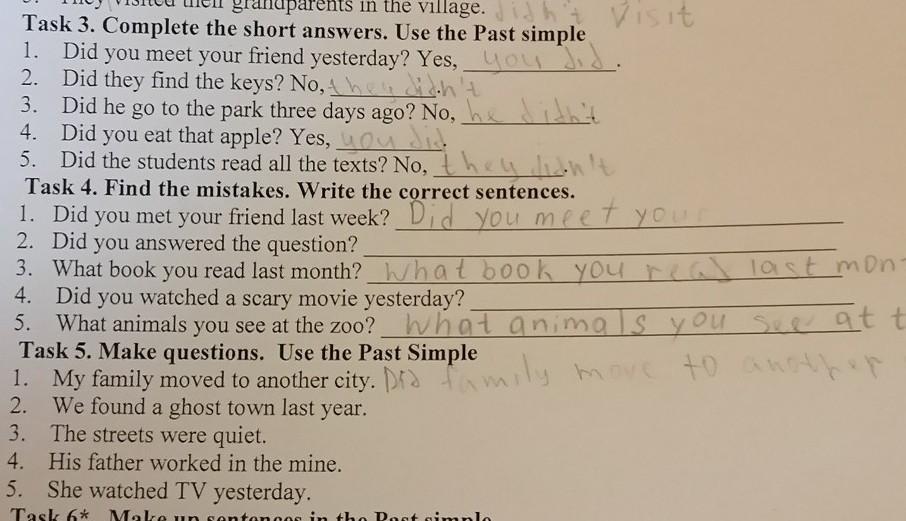 They visited their grandparents in the village. didn't visit
Task 3. Complete the short answers. Use the Past simple
1. Did you meet your friend yesterday? Yes, you did.
2. Did they find the keys? No, they didn't
3. Did he go to the park three days ago? No, he didn't
4. Did you eat that apple? Yes, you did.
5. Did the students read all the texts? No, they didn't
Task 4. Find the mistakes. Write the correct sentences.
1. Did you met your friend last week? Did you meet your
2. Did you answered the question?
3. What book you read last month? What book you read last mon
4. Did you watched a scary movie yesterday?
5. What animals you see at the zoo? What animals you see at t
Task 5. Make questions. Use the Past Simple
1. My family moved to another city. Did family move to another
2. We found a ghost town last year.
3. The streets were quiet.
4. His father worked in the mine.
5. She watched TV yesterday.
Task 6* Make up sentences in the Past simple